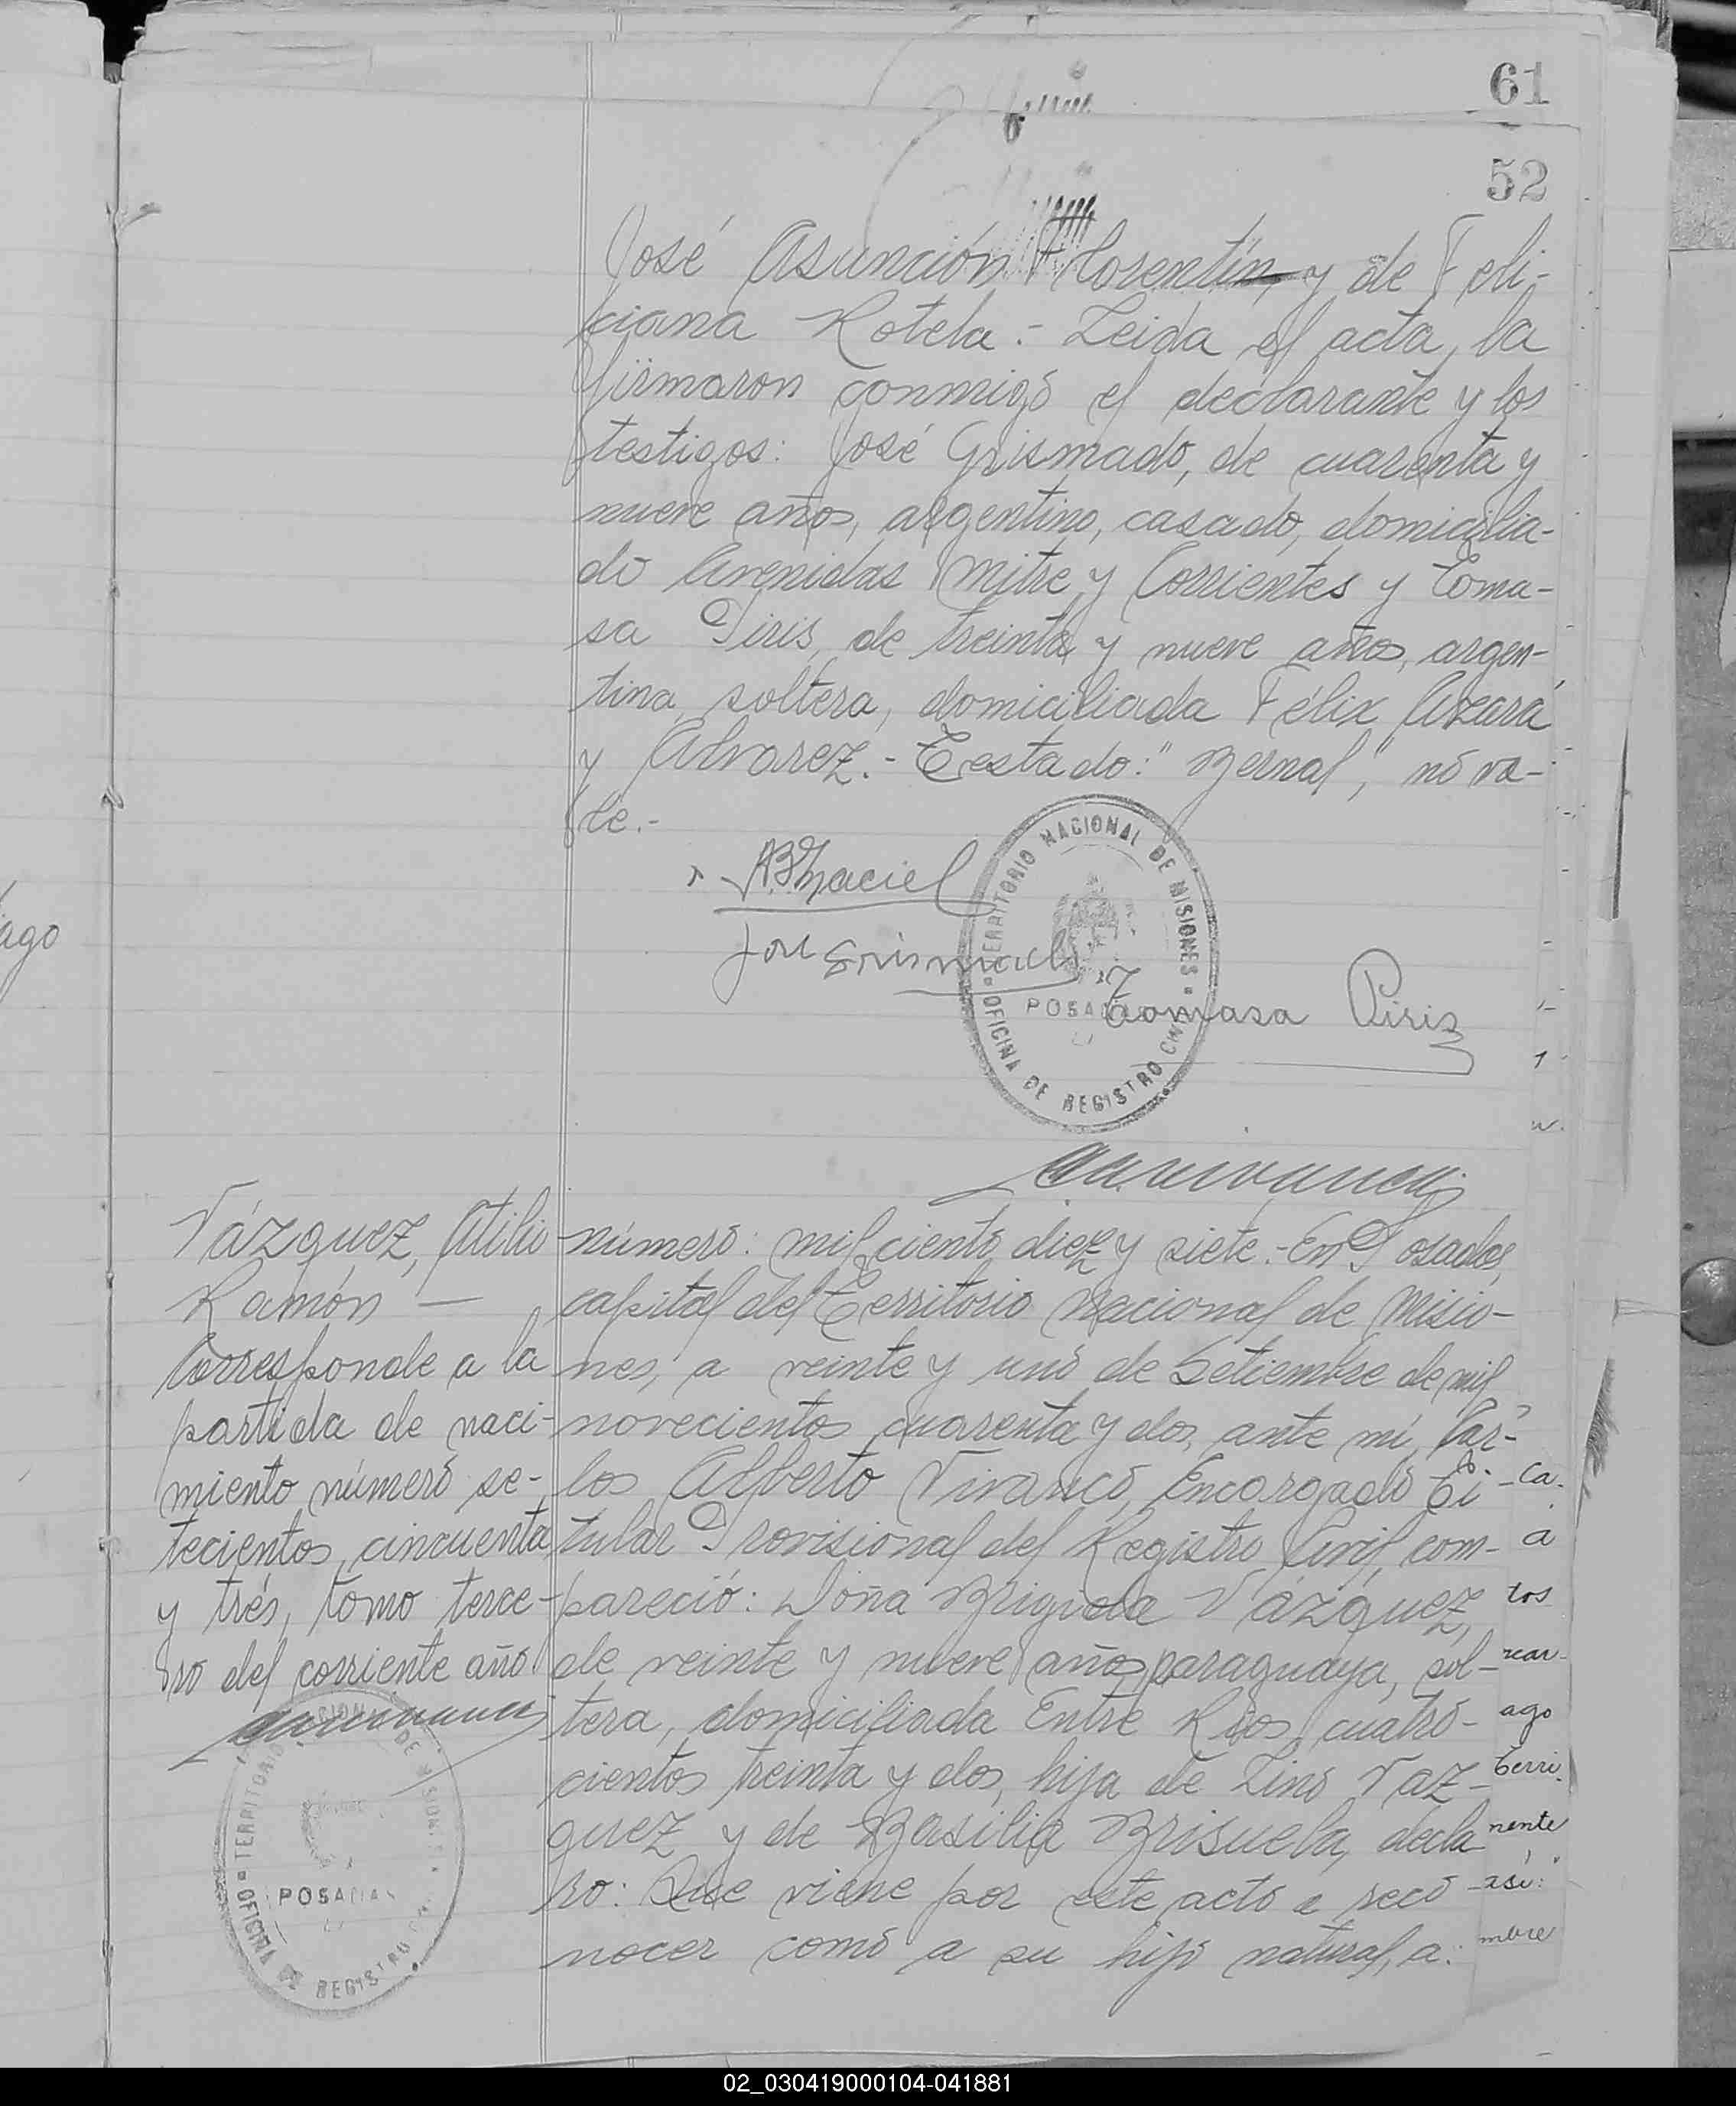 61
52
José Asunción Florentín, y de Feli-
ciana Rotela.- Leida el acta, la
firmaron conmigo el declarante y los
testigos: José Grismado, de cuarenta y
nueve años, argentino, casado, domicilia-
do Avenidas Mitre y Corrientes y Toma-
sa Piris, de treinta y nueve años, argen-
tina, soltera, domiciliada Félix Azara
y Alvarez.- Testado: "Bernal", no va-
le.-
A.B. Maciel
José Grismado
TERRITORIO NACIONAL DE MISIONES
POSADAS
OFICINA DE REGISTRO CIVIL
Tomasa Piris
ago
Vázquez, Atilio
Ramón —
Corresponde a la
partida de naci-
miento número se-
tecientos cincuenta
y trés, tomo terce-
ro del corriente año.
TERRITORIO NACIONAL DE MISIONES
POSADAS
OFICINA DE REGISTRO CIVIL
número: mil ciento diez y siete.- En Posadas,
capital del Territorio Nacional de Misio-
nes, a veinte y uno de Setiembre de mil
novecientos cuarenta y dos, ante mí, Car-
los Alberto Vivanco, Encargado Ti-
tular Provisional del Registro Civil, com-
pareció: Doña Brigida Vázquez,
de veinte y nueve años, paraguaya, sol-
tera, domiciliada Entre Rios cuatro-
cientos treinta y dos, hija de Lino Vaz-
quez y de Basilia Brisuela, decla
ro: Que viene por este acto a reco
nocer como a su hijo natural, a:
ca.
a
tos
ago
Terri.
nente
asi:
mbre
02_030419000104-041881